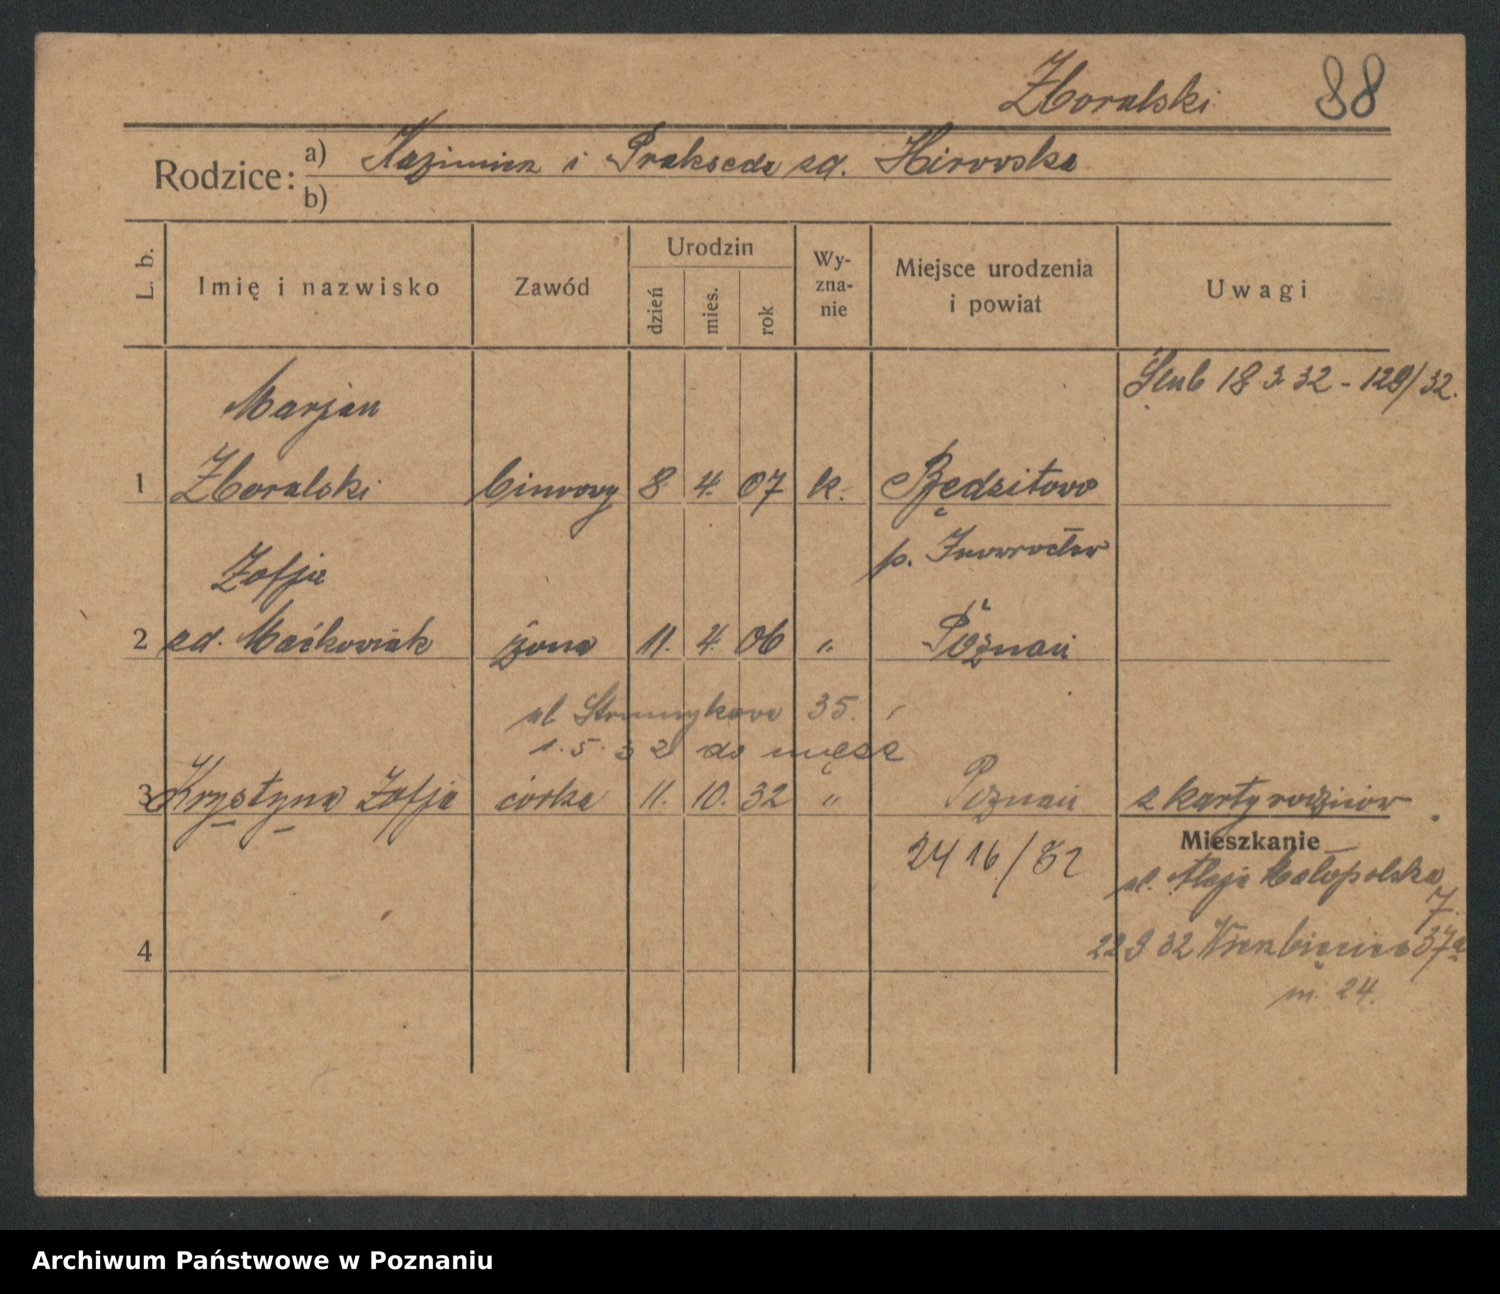 Zboralski 88
Rodzice:
a) Kazimierz i Prakseda zd.
b)
L. b.
Imię i nazwisko
Zawód
Urodzin
dzień
mies.
rok
Wy-
zna-
nie
Miejsce urodzenia
i powiat
Uwagi
Ślub 18 3 32 - 129/32.
Marjan
1 Zboralski biurowy 8 4. 07 k.
p. Inowrocław
Zofja
2 zd. Maćkowiak żona 11. 4. 06 " Poznań
ul 35.
1. 5. 32 do
3 Krystyna Zofja córka 11. 10. 32 " Poznań z karty rodziców
2416/32
Mieszkanie
ul. Aleja Małopolska
7.
4
22 9 32 Wierzbięcice 37a
m. 24.
Archiwum Państwowe w Poznaniu